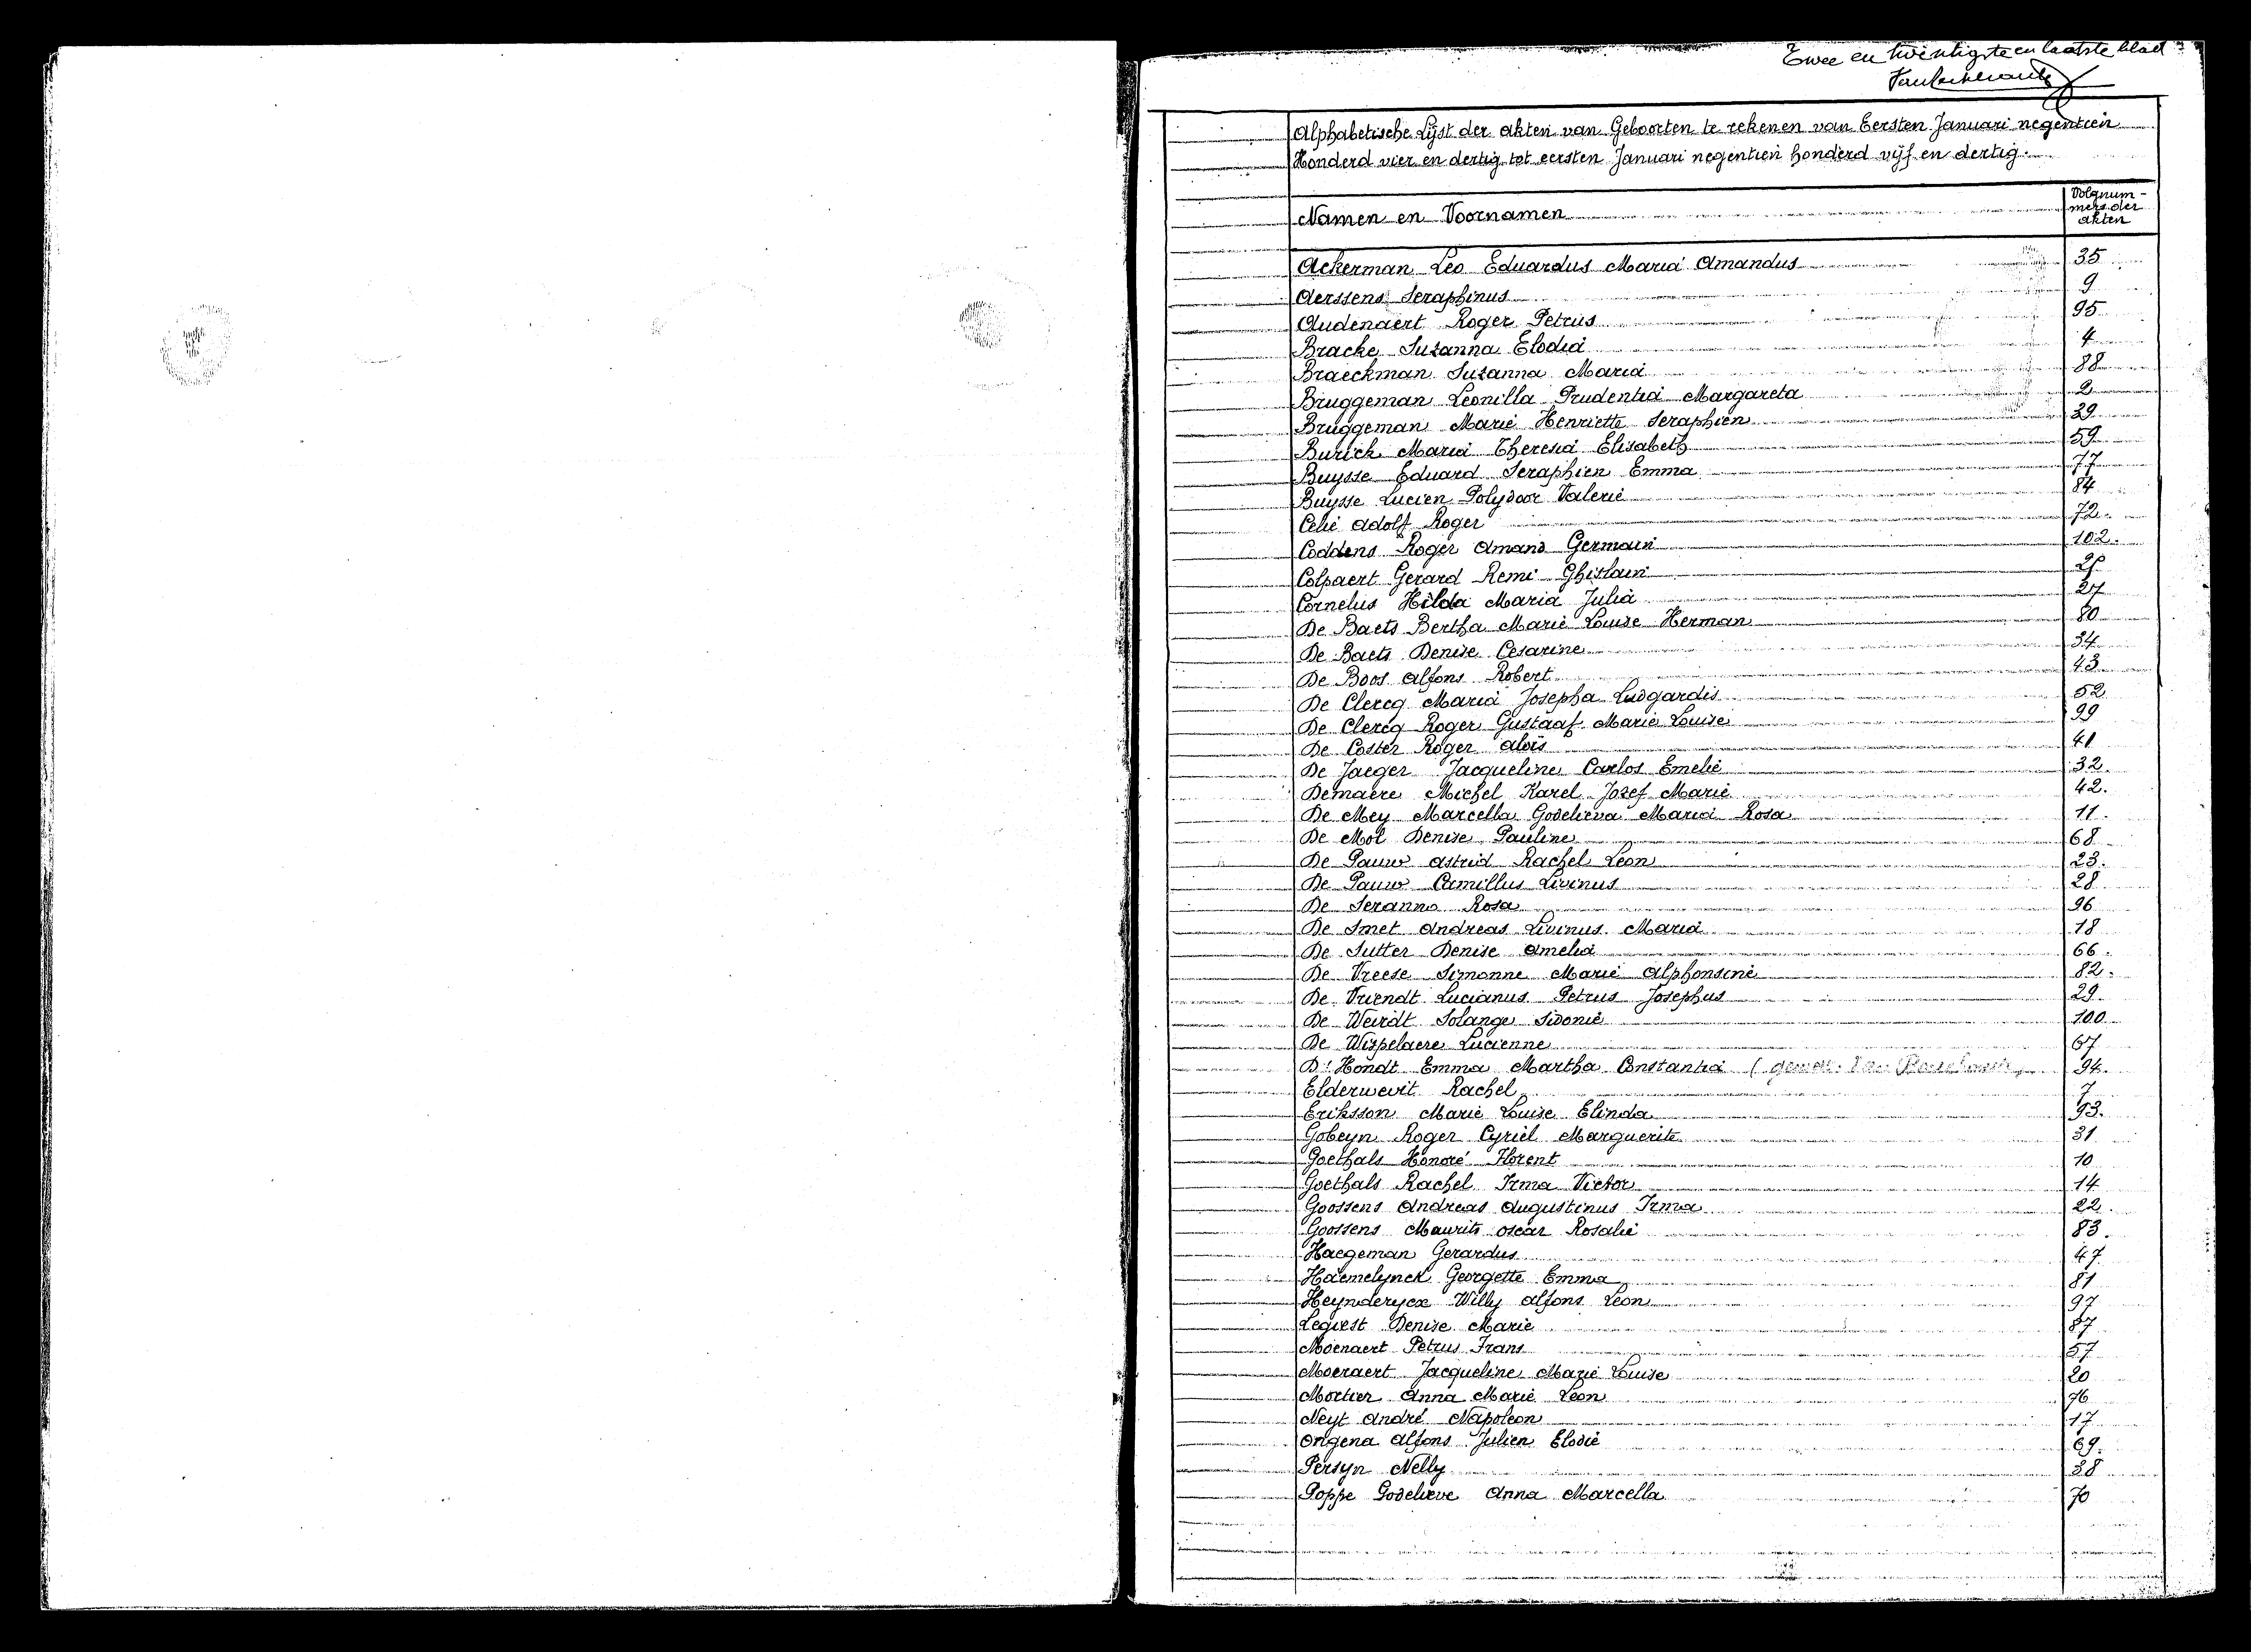 Twee en twintigste en laatste blad
Alphabetische Lijst der akten van Geboorten te rekenen van Eersten Januari negentien
Honderd vier en dertig tot eersten Januari negentien honderd vijf en dertig.
Namen en Voornamen
Volgnum-
mers der
akten
Ackerman Leo Eduardus Maria Amandus 35
Aerssens Seraphinus 9
Audenaert Roger Petrus 95
Bracke Suzanna Elodia 4
Braeckman Suzanna Maria 88
Bruggeman Leonilla Prudentia Margareta 2
Bruggeman Marie Henriette Seraphien 39
Burick Maria Theresia Elisabeth 59
Buysse Eduard Seraphien Emma 77
Buysse Lucien Polydoor Valerie 84
Celie Adolf Roger 72.
Coddens Roger Amand Germain 102.
Colpaert Gerard Remi Ghislain
Cornelus Hilda Maria Julia 27
De Baets Bertha Marie Louise Herman 80
De Baets Denise Cesarine 34
De Boos Alfons Robert 43
De Clercq Maria Josepha Ludgardis 52
De Clercq Roger Gustaaf Marie Louise 99
De Coster Roger Aloïs 41
De Jaeger Jacqueline Carlos Emelie 32.
Demaere Michel Karel Jozef Marie 42.
De Mey Marcella Godelieva Maria Rosa 11.
De Mol Denise Pauline 68
De Pauw Astrid Rachel Leon 23.
De Pauw Camillus Livinus 28
De Seranno Rosa 96
De Smet Andreas Livinus Maria 18
De Sutter Denise Amelia 66.
De Vreese Simonne Marie Alphonsine 82.
De Vriendt Lucianus Petrus Josephus 29
De Weirdt Solange Sidonie 100
De Wispelaere Lucienne 67
D'Hondt Emma Martha Constantia ( 94.
Elderweirt Rachel 7
Eriksson Marie Louise Elinda 93.
Gobeyn Roger Cyriel Marguerite 31
Goethals Honoré Florent 10
Goethals Rachel Irma Victor 14
Goossens Andreas Augustinus Irma 22.
Goossens Maurits Oscar Rosalie 83.
Haegeman Gerardus 47
Haemelynck Georgette Emma 81
Heynderycx Willy Alfons Leon 97
Legiest Denise Marie 87
Moenaert Petrus Frans 57
Moeraert Jacqueline Marie Louise 20
Mortier Anna Marie Leon 76
Neyt André Napoleon 17
Origena Alfons Julien Elodie 69.
Persyn Nelly 38
Poppe Godelieve Anna Marcella 70